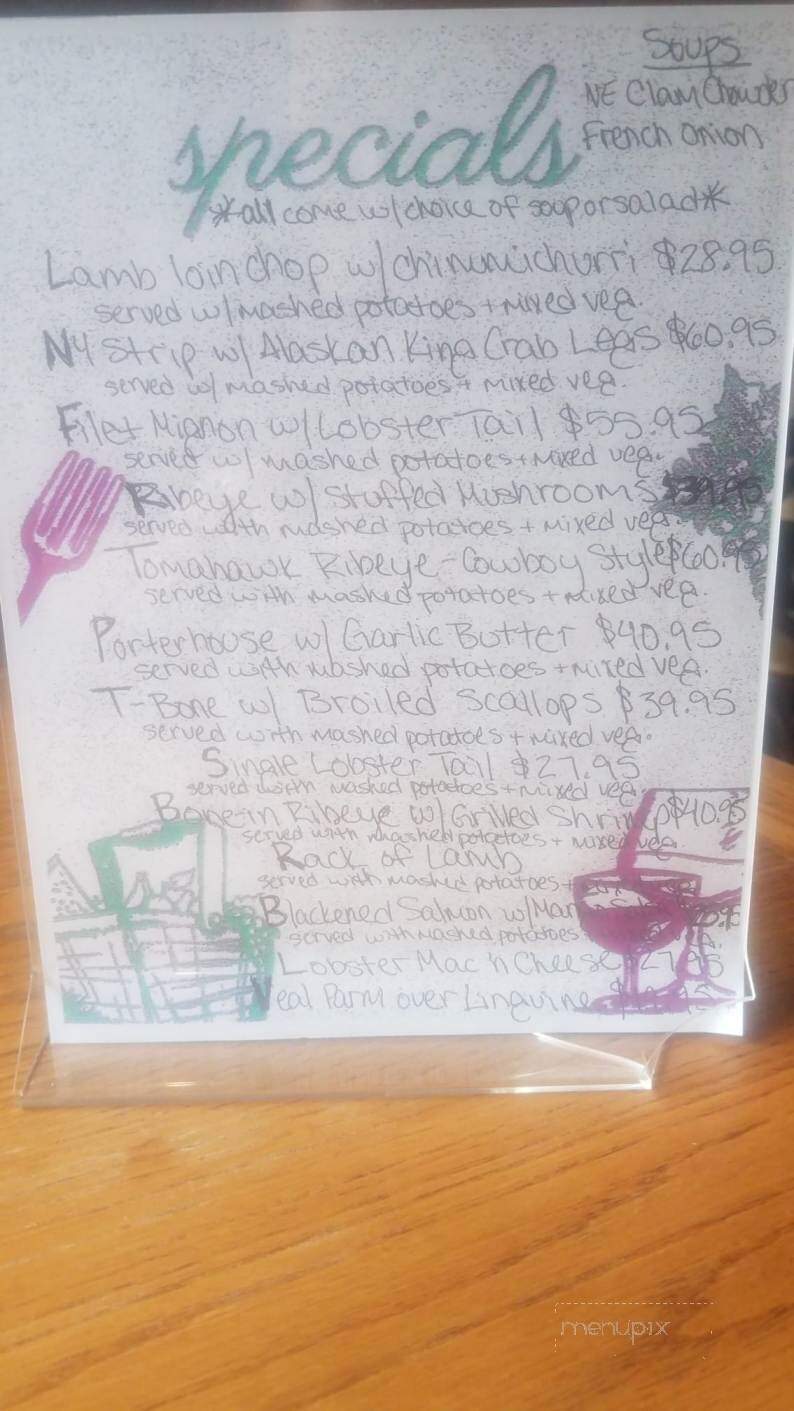 Soups
NE Clam Chowder
French Onion
specials
*all come w/choice of soup or salad*
Lamb loin chop w/chimmichurri $28.95
served w/mashed potatoes + mixed veg.
NY Strip w/ Alaskan King Crab Legs $60.95
served w/ mashed potatoes + mixed veg.
Filet Mignon w/Lobster Tail $55.95
served w/ mashed potatoes + mixed veg.
Ribeye w/ Stuffed Mushrooms $39.95
served with mashed potatoes + mixed veg.
Tomahawk Ribeye-Cowboy Style $60.95
served with mashed potatoes + mixed veg.
Porterhouse w/ Garlic Butter $40.95
served with mashed potatoes + mixed veg.
T-Bone w/ Broiled Scallops $39.95
served with mashed potatoes + mixed veg.
Single Lobster Tail $27.95
served with mashed potatoes + mixed veg.
Bone-in Ribeye w/Grilled Shrimp $40.95
served with mashed potatoes + mixed veg.
Rack of Lamb
served with mashed potatoes +
Blackened Salmon w/
served with mashed potatoes
Lobster Mac 'n Cheese $27.95
Veal Parm over Linguine
menupix